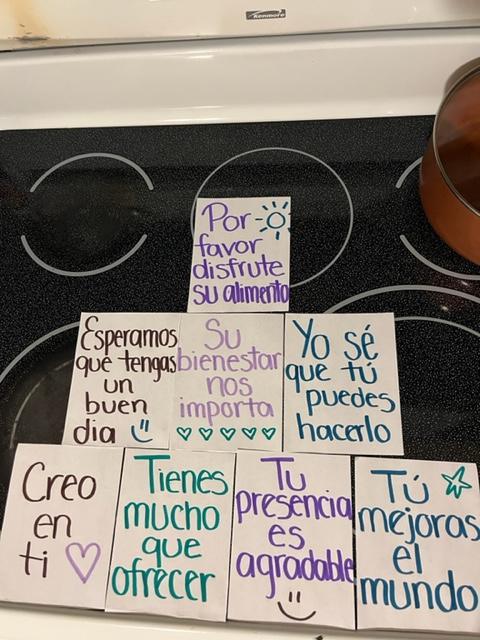 Kenmore
Por
favor
disfrute
su alimento
Esperamos
que tengas
un
buen
dia
Su
bienestar
nos
importa
Yo sé
que tú
puedes
hacerlo
Creo
en
ti
Tienes
mucho
que
ofrecer
Tu
presencia
es
agradable
Tú
mejoras
el
mundo